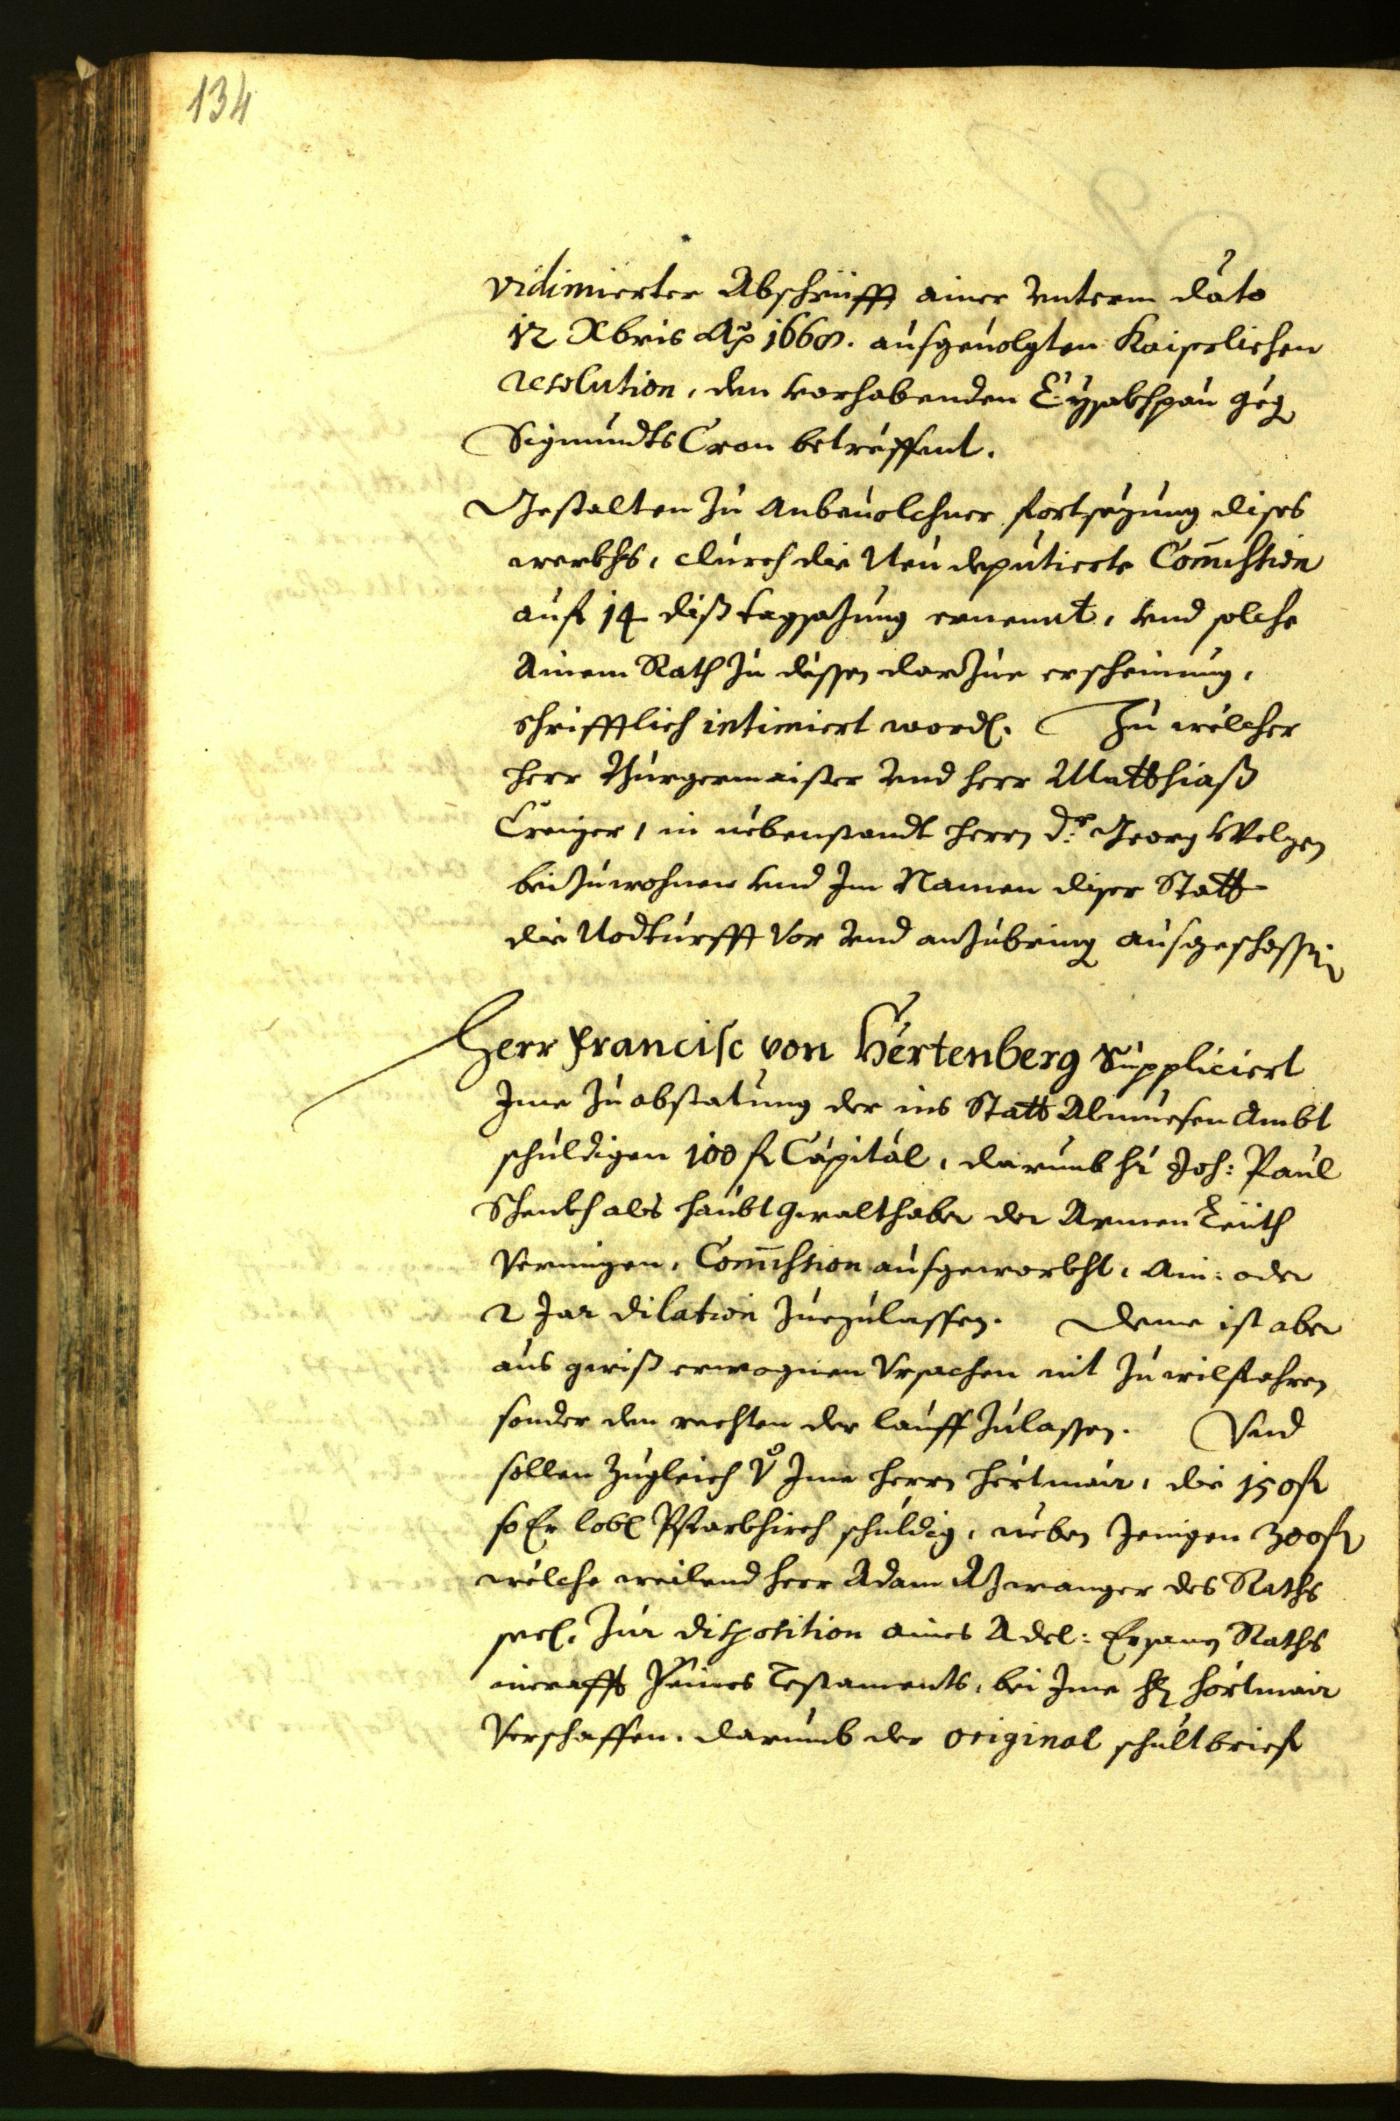 134
vidimierter Abschrüfft ainer vnterm dato
12 Xbris Ao 1668. ausgeuolgten Kaiserlichen
resolution, den vorhabenden Eysakhpau geg
Sigmundts Cron betreffent.
Gestalten zu Anbeuolchner fortsezung dises
werkhs, durch die Neu deputierte Commission
auf 14 diß tagsazung ernennt, vnd solche
Ainem Rath zu dessen darzue erscheinung,
schrifftlich intimiert word. Zu welcher
herr Burgermaister vnd herr Matthiaß
Creizer, in nebenstandt herrn dr: Georg Welzen
beizuwohnen vnd Im Namen diser Statt
die Nodturfft vor vnd anzubring ausgeschossen
Herr Francisc von Hertenberg Suppliciert
Jme zu abstatung der ins Statt Almuesen Ambt
schuldigen 100 fl Capital, darumb hr Joh: Paul
Schenkh als haubt Gwalthaber der Armen Leüth
Vermigen, Commission ausgeworkht, Ain: oder
2 Jar dilation zuezulassen. Deme ist aber
aus gwiß erwognen Vrsachen nit zu wilfahren
sonder den rechten der lauff zulassen. Vnd
sollen zugleich Vo Jme herrn hertmair, die 150 fl
so Er lobl Pfarkhirch schuldig, neben Jenigen 300 fl
welche weilend herr Adam Azwanger des Raths
seel. zur disposition aines Adel: Ersamen Raths
incrafft seines Testaments, bei Jme hr hörtmair
Verschaffen. darumb der original schultbrief